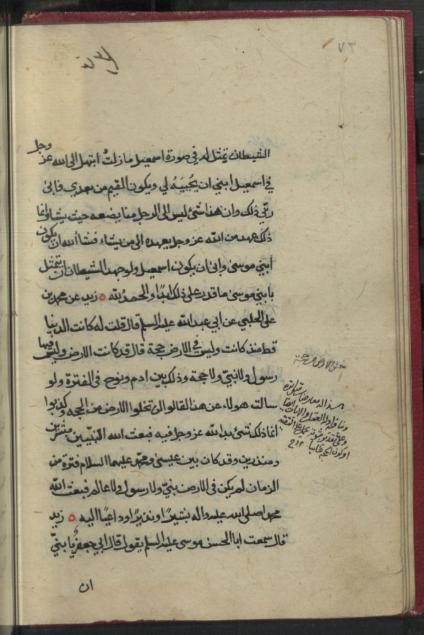 ٧٣
الشيطان تمثل له في صورة اسمعيل ما زلت ابتهل الى الله عز وجل
في اسمعيل ابني ان يحييه لي ويكون القيم من بعدي فابى
ربي ذلك وان هذا شئ ليس الى الرجل منا يضعه حيث يشاء وانما
ذلك عهد من الله عز وجل يعهده الى من يشاء فشاء الله ان يكون
ابني موسى وابى ان يكون اسمعيل ولو جهد الشيطان ان يتمثل
بابني موسى ما قدر على ذلك ابدا والحمد لله ه زيد عن محمد بن
علي الحلبي عن ابي عبد الله عليه السلم قال قلت له كانت الدنيا
قط منذ كانت وليس في الارض حجة قال قد كانت الارض وليس فيها
رسول ولا نبي ولا حجة وذلك بين ادم ونوح في الفترة ولو
سالت هولاء عن هذا لقالوا لن تخلوا الارض من الحجة وكذبوا
انما ذلك شئ بدا لله عز وجل فيه فبعث الله النبيين مبشرين
ومنذرين وقد كان بين عيسى ومحمد عليهما السلام فترة من
الزمان لم يكن في الارض نبي ولا رسول ولا عالم فبعث الله
محمدا صلى الله عليه واله بشيرا ونذيرا وداعيا اليه ه زيد
قال سمعت ابا الحسن موسى عليه السلم يقول قال ابي جعفر يا بني
ان